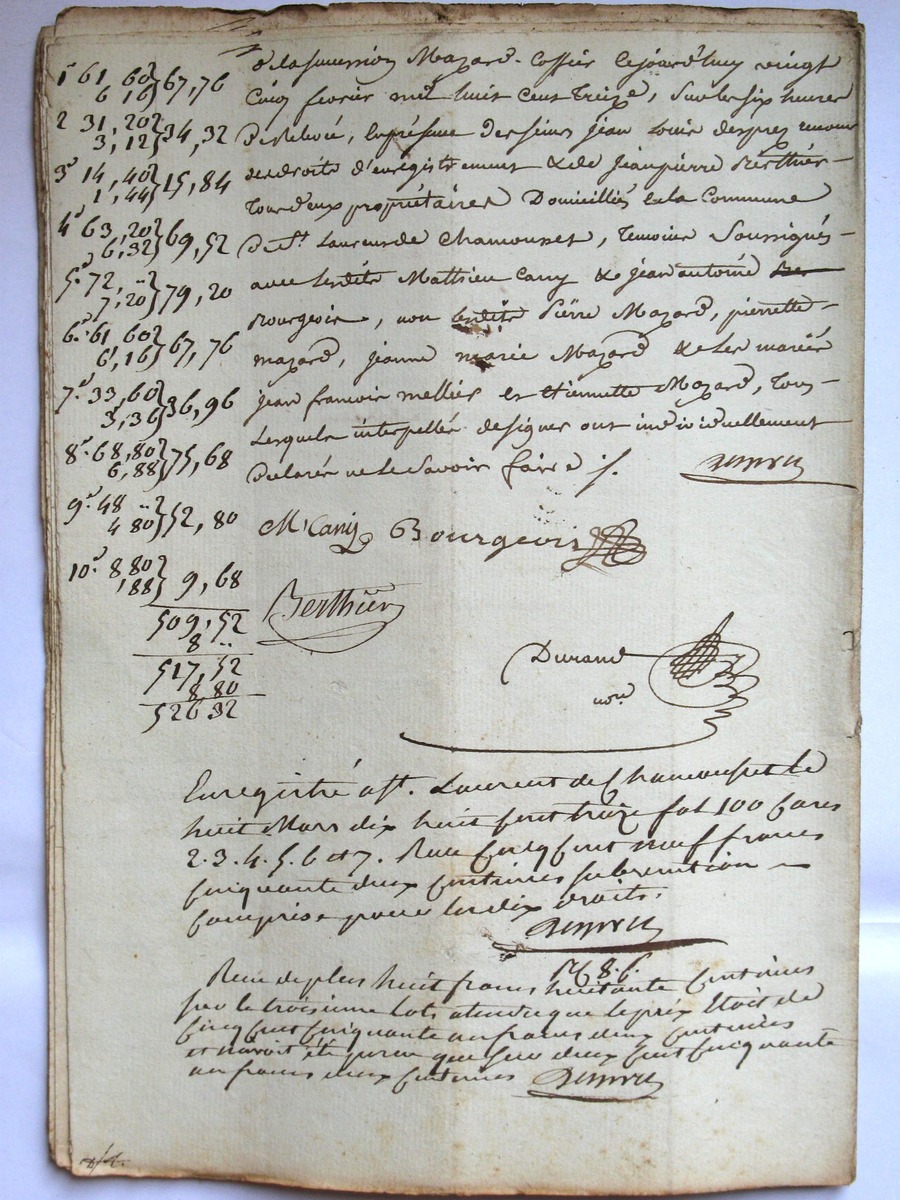 1° 61, 60 } 67, 76
6 16
2 31, 20 } 34, 32
3, 12
3° 14, 40 } 15, 84
1, 44
4° 63, 20 } 69, 52
6, 32
5° 72, " } 79, 20
7, 20
6° 61 60 } 67, 76
6, 16
7° 33, 60 } 36, 96
3, 36
8° 68, 80 } 75, 68
6, 88
9° 48 " } 52, 80
4 80
10° 8 80 } 9, 68
, 88
509, 52
8 "
517, 52
8 80
526 32
de la succession Mazard. Cossier cejourd'huy vingt
Cinq fevrier mil huit cent treize, sur les six heures
De Relevé, En présence des sieurs Jean Louis desprez receveur
des droits d'enregistrement & de Jeanpierre Berthier
tous deux propriétaires Domiciliés en la Commune
De St. Laurent de Chamousset, temoins Soussignés
avec lesdits Mathieu Cany & jean antoine
Bourgeois, non lesdits Pierre Mazard, pierrette
mazard, jeanne marie Mazard & les mariés
jean francois mellier et Etiennette Mazard, tous
Lesquels interpellés de signer ont individuellement
Déclarés ne le Savoir faire /.
M. Cany Bourgeois
Berthier
Durand
nore
Enregistré a St. Laurent de Chamousset le
huit Mars dix huit cent treize fol 100 Cares
2. 3. 4. 5. 6 et 7. Reçu Cinq cent neuf francs
Cinquante deux Centimes subvention
Comprise pour les dix droits.
Recu de plus huit francs huitante Centimes
sur le troisieme Lots attendu que le prix Etoit de
Cinq Cent Cinquante un francs deux Centimes
et n'avoit été percu que sur deux Cent Cinquante
un francs deux Centimes